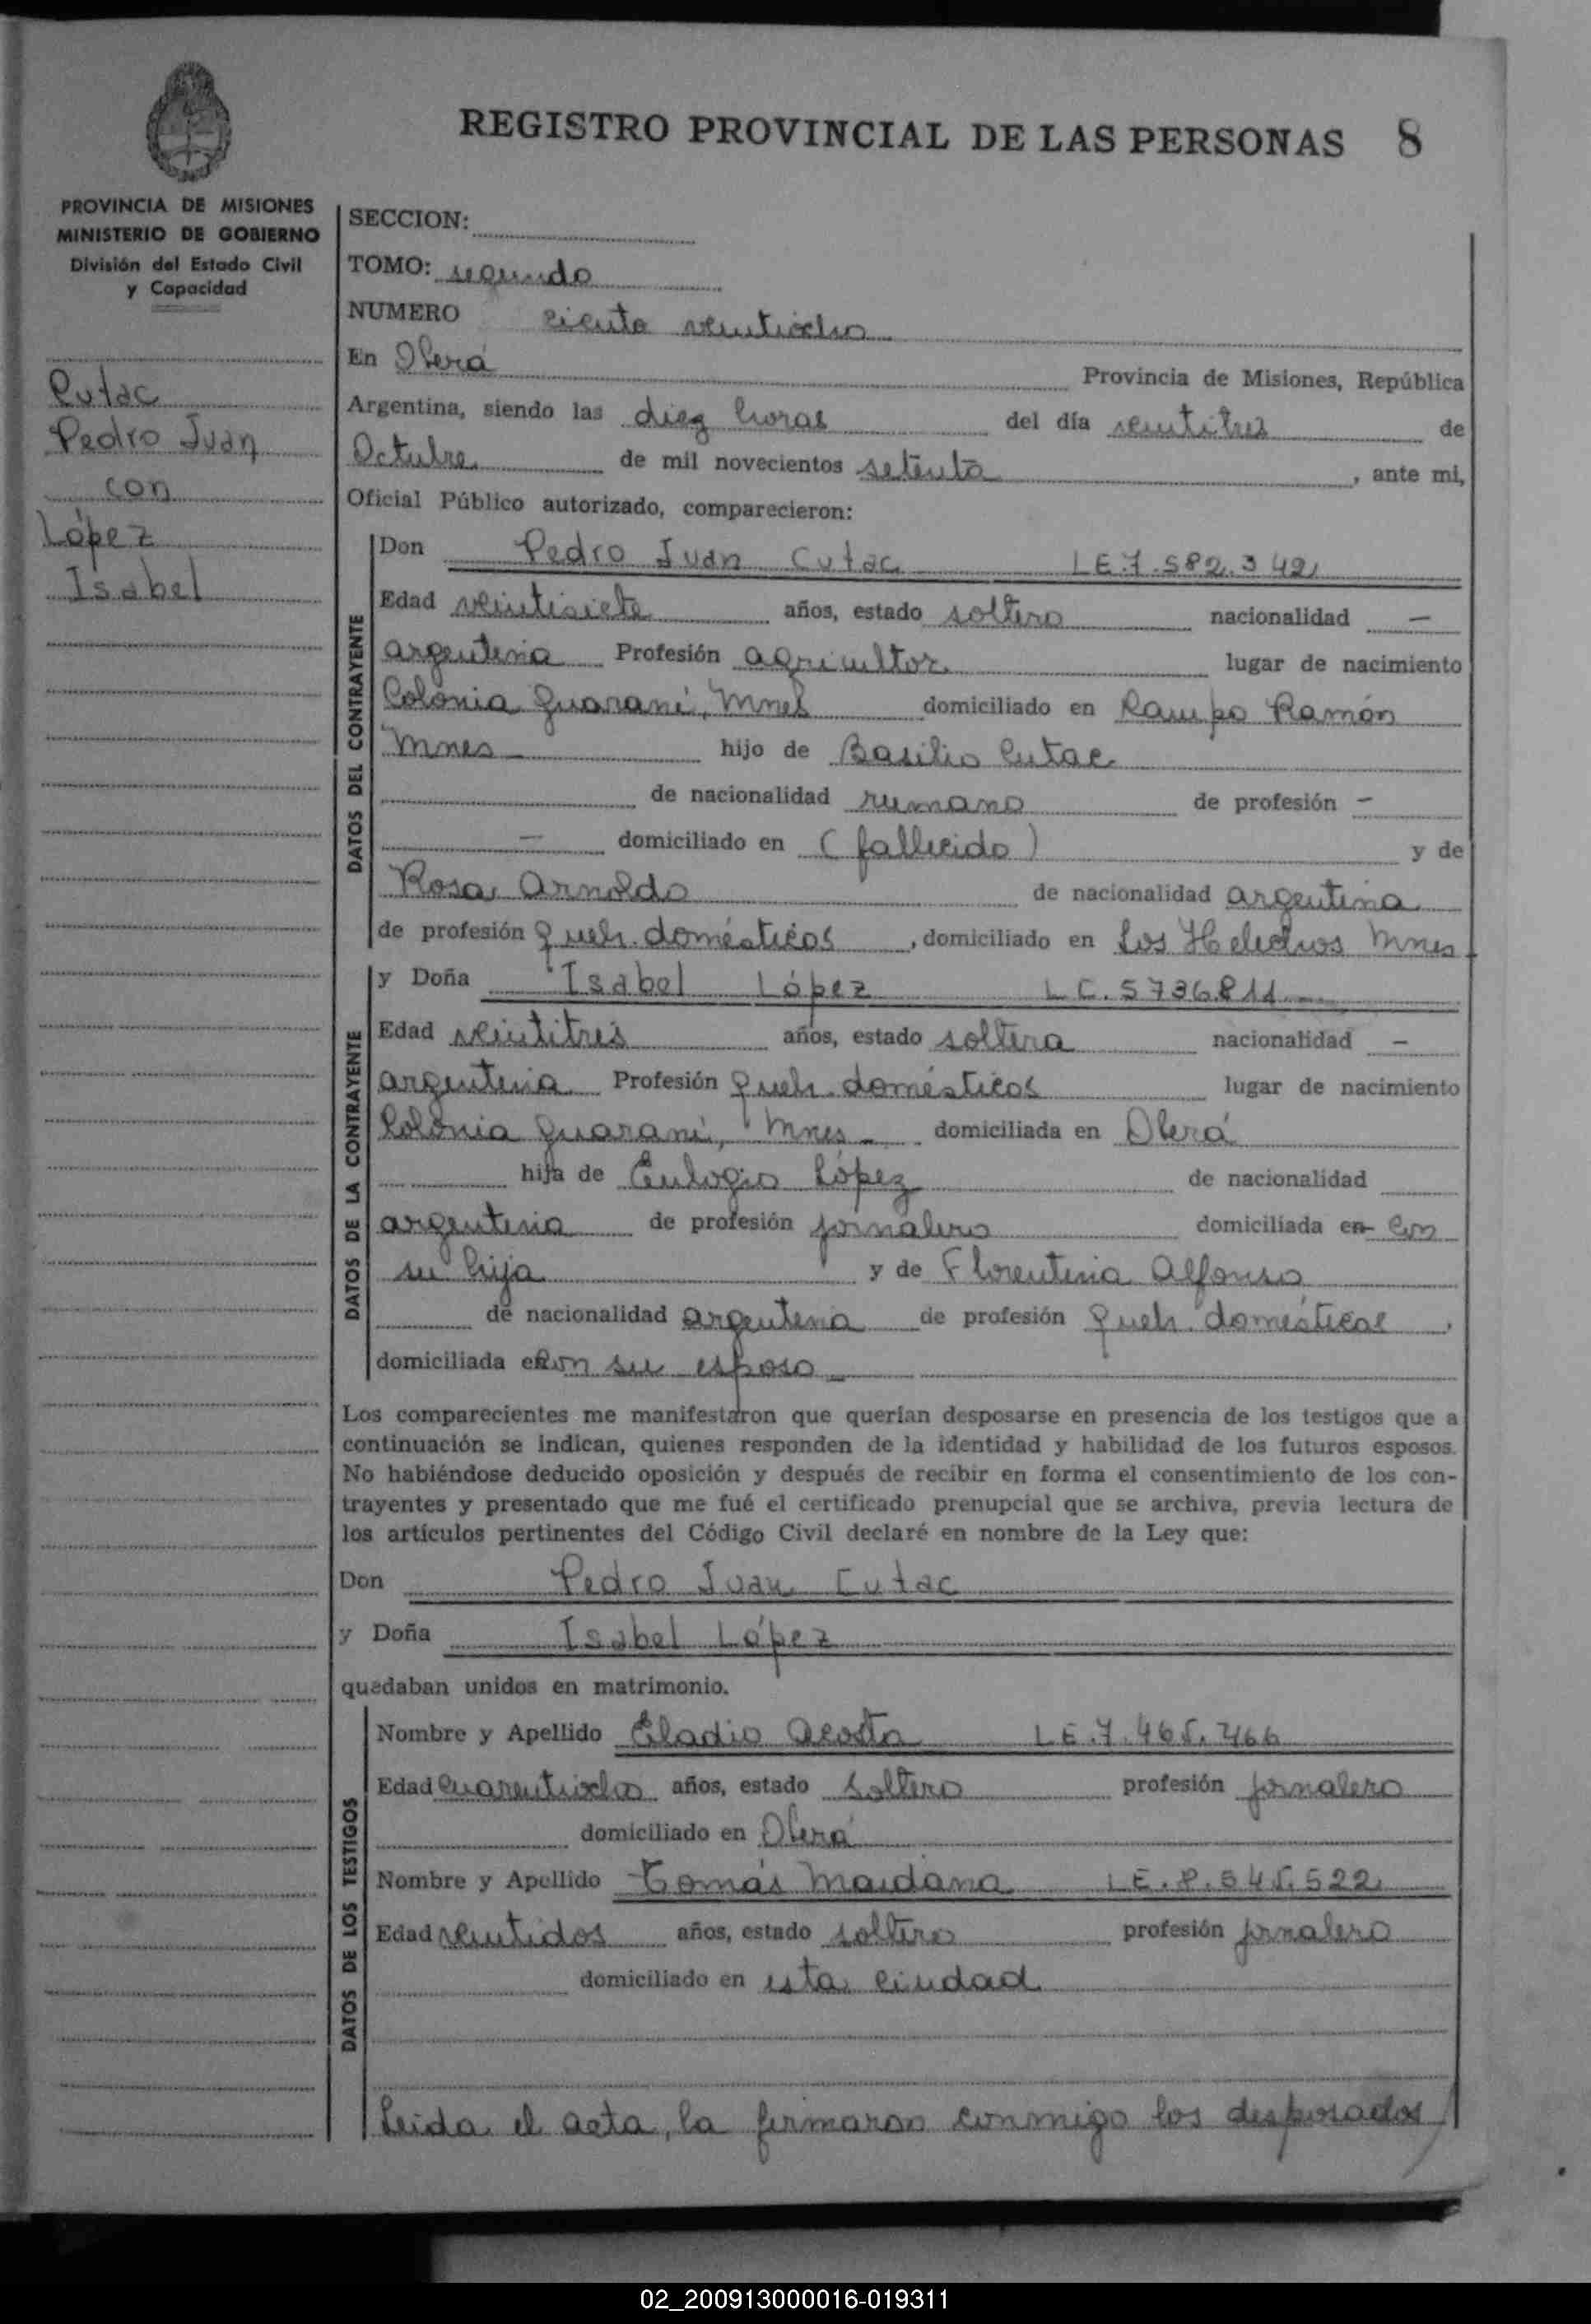 REGISTRO PROVINCIAL DE LAS PERSONAS 8
PROVINCIA DE MISIONES
MINISTERIO DE GOBIERNO
División del Estado Civil
y Capacidad
Cutac
Pedro Juan
con
López
Isabel
SECCION:
TOMO: segundo
NUMERO ciento veintiocho
En Oberá Provincia de Misiones, República
Argentina, siendo las diez horas del día veintitres de
Octubre de mil novecientos setenta, ante mi,
Oficial Público autorizado, comparecieron:
DATOS DEL CONTRAYENTE
Don Pedro Juan Cutac LE.7.582.342
Edad veintisiete años, estado soltero nacionalidad —
argentina Profesión agricultor lugar de nacimiento
Colonia Guaraní, Mnes domiciliado en Campo Ramón
Mnes hijo de Basilio Cutac
de nacionalidad rumano de profesión —
— domiciliado en (fallecido) y de
Rosa Arnoldo de nacionalidad argentina
de profesión Queh. domésticos, domiciliado en Los Helechos Mnes
DATOS DE LA CONTRAYENTE
y Doña Isabel López LC. 5736811
Edad veintitres años, estado soltera nacionalidad —
argentina Profesión Queh. domésticos lugar de nacimiento
Colonia Guaraní, Mnes domiciliada en Oberá
hija de Eulogio López de nacionalidad
argentina de profesión jornalero domiciliada en con
su hija y de Florentina Alfonso
de nacionalidad argentina de profesión Queh. domésticos,
domiciliada en con su esposo
Los comparecientes me manifestaron que querían desposarse en presencia de los testigos que a
continuación se indican, quienes responden de la identidad y habilidad de los futuros esposos.
No habiéndose deducido oposición y después de recibir en forma el consentimiento de los con-
trayentes y presentado que me fué el certificado prenupcial que se archiva, previa lectura de
los artículos pertinentes del Código Civil declaré en nombre de la Ley que:
Don Pedro Juan Cutac
y Doña Isabel López
quedaban unidos en matrimonio.
DATOS DE LOS TESTIGOS
Nombre y Apellido Eladio Acosta LE.7.465.466
Edad cuarentiocho años, estado soltero profesión jornalero
domiciliado en Oberá
Nombre y Apellido Tomás Maidana LE.8.545.522
Edad veintidos años, estado soltero profesión jornalero
domiciliado en esta ciudad
Leida el acta, la firmaron conmigo los desposados
02_200913000016-019311